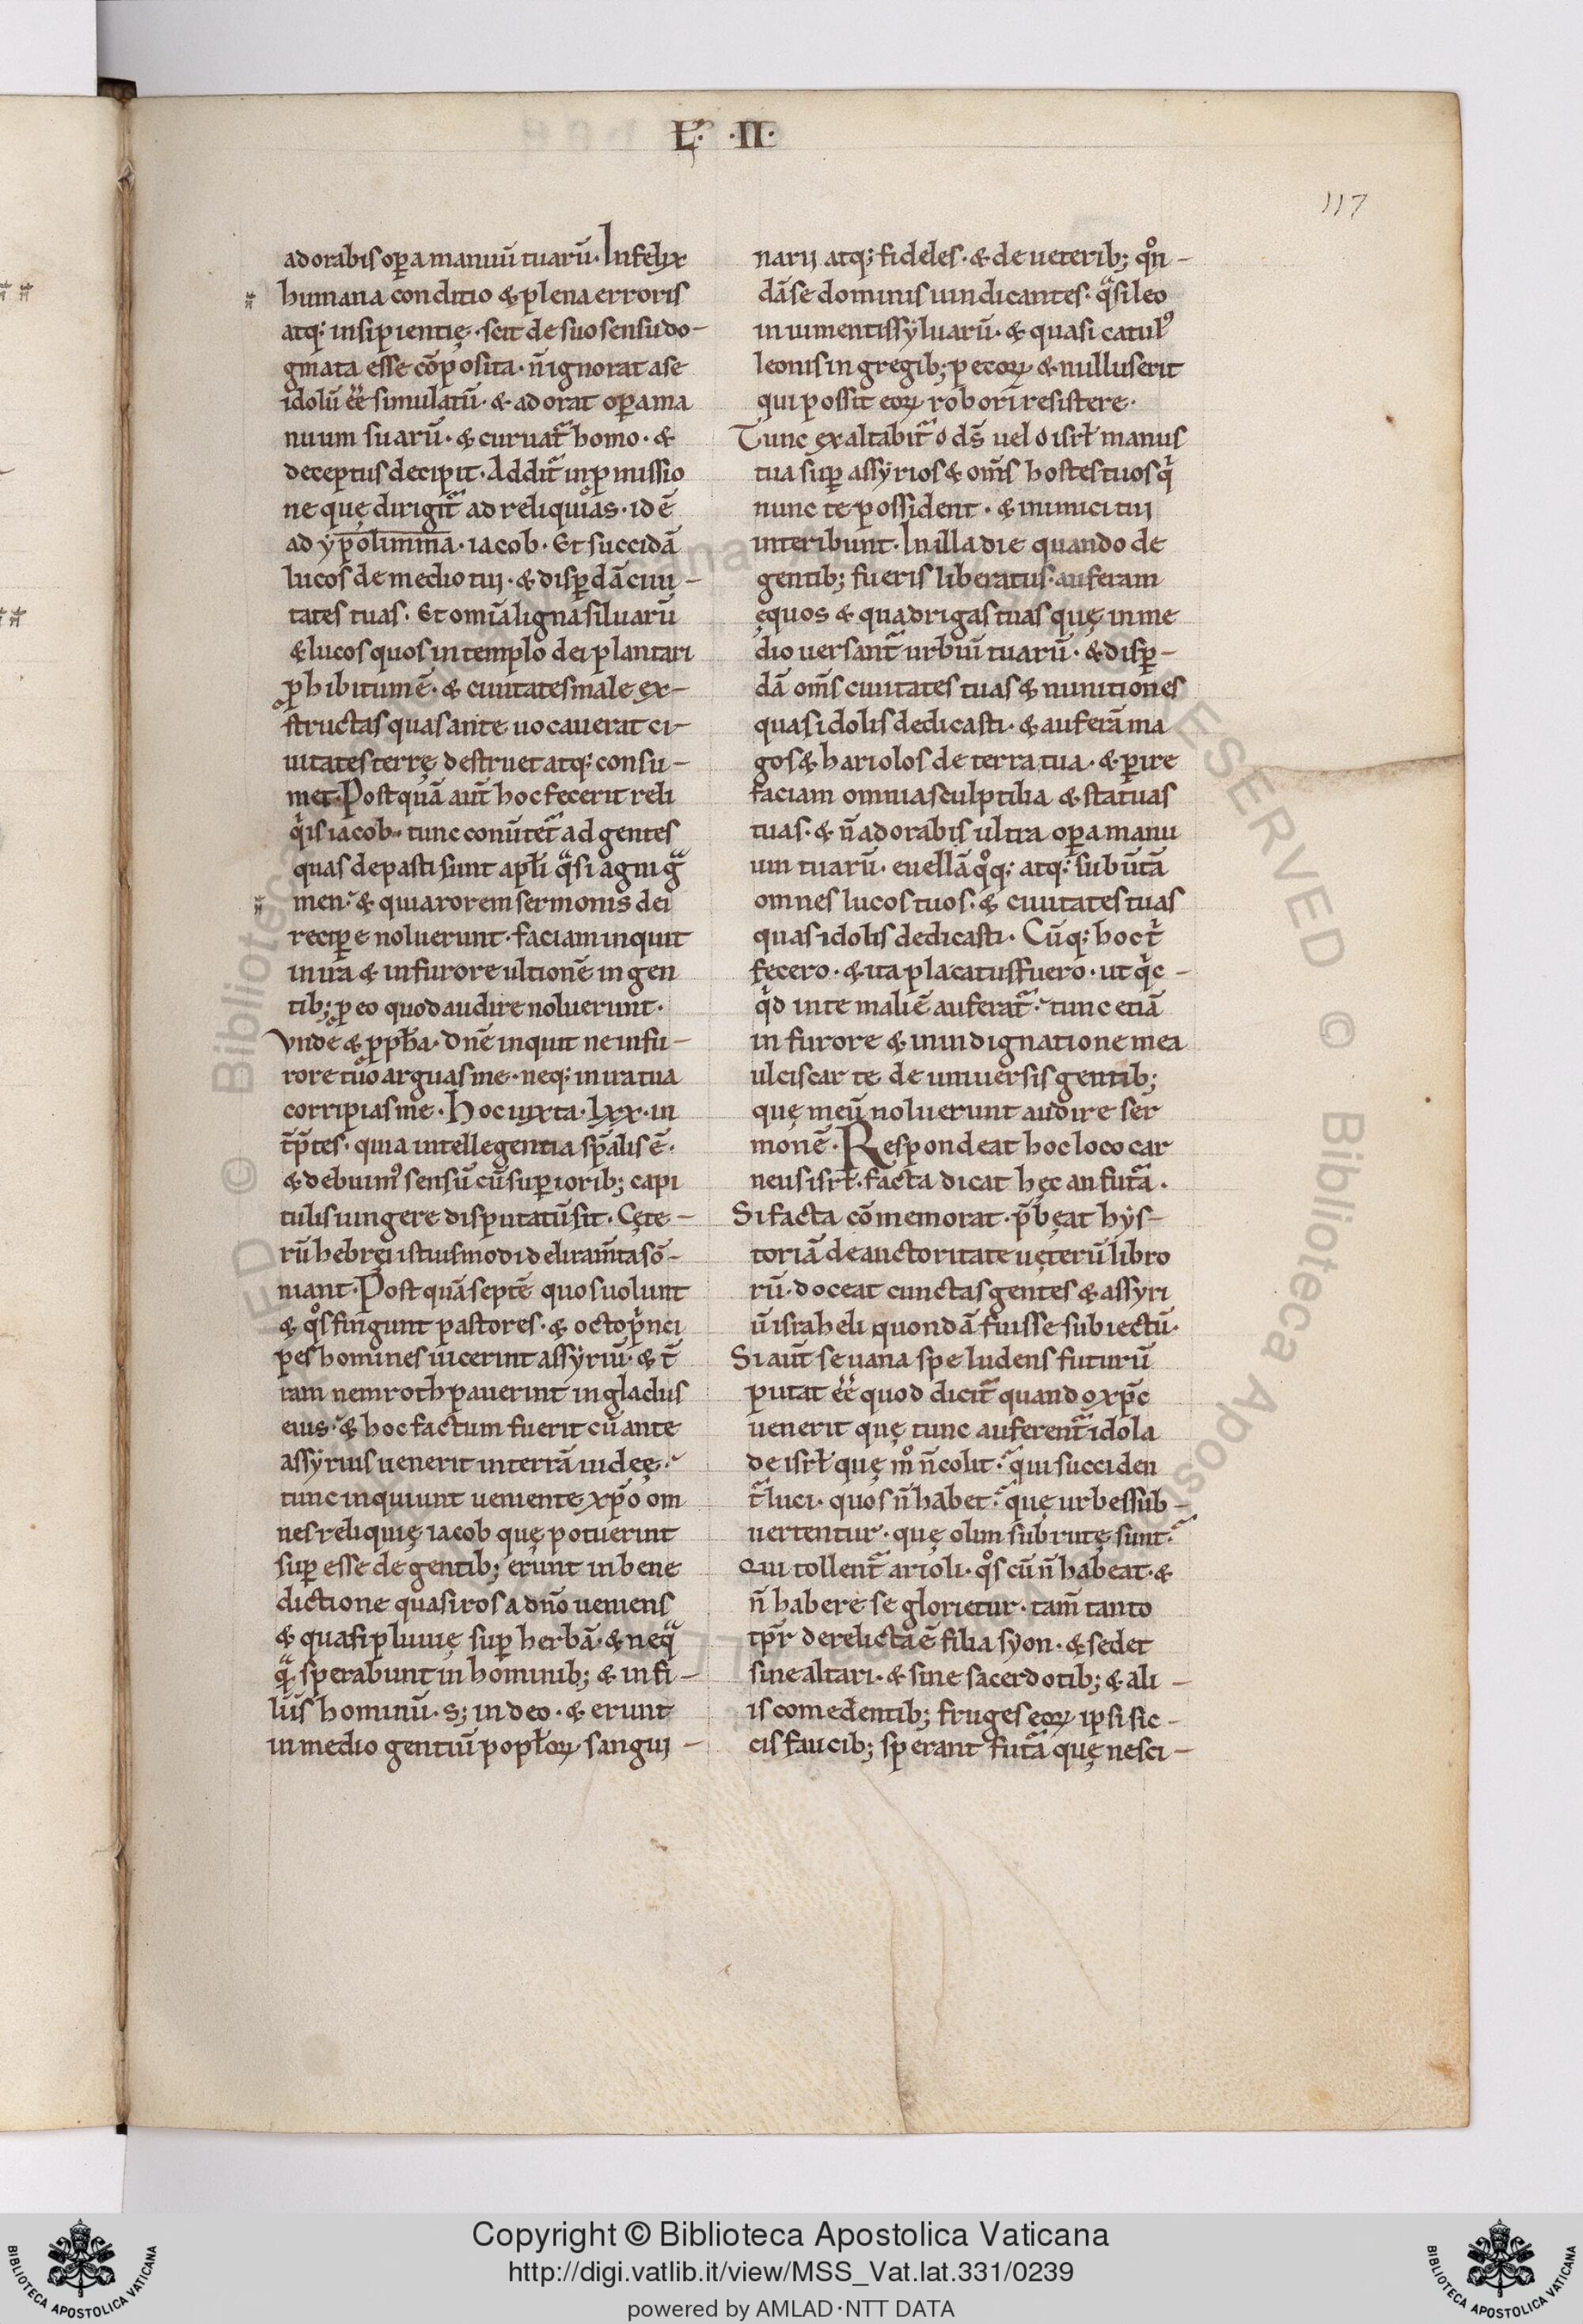 L̃· ·II·
117
adorabis oꝑa manuũ tuarũ. Infelix
humana conditio & plena erroris
atq; insipientię. scit de suo sensu do-
gmata esse cõposita. ñ ignorat a se
idolũ eẽ simulatũ. & adorat oꝑa ma
nuum suarũ. & curuat᷑ homo. &
deceptus decipit. Addit᷑ in ꝓmissio
ne quę dirigit᷑ ad reliquias. id ẽ
ad ypolimma. iacob. Et succidã
lucos de medio tui. & disꝑdã ciui-
tates tuas. Et om̃a ligna siluarũ
& lucos quos in templo dei plantari
ꝓhibitum ẽ. & ciuitates male ex-
structas quas ante uocauerat ci-
uitates terrę destruet atq; consu-
met. Postquã aut̃ hoc fecerit reli
qͥis iacob. tunc conũtet᷑ ad gentes
quas depasti sunt apłi qͣsi agni gͣ
men. & qui a rorem sermonis dei
reciꝑe noluerunt. faciam inquit
in ira & in furore ultionẽ in gen
tib; ꝓ eo quod audire noluerunt.
Vnde & ꝓpħa. Dñe inquit ne in fu-
rore tuo arguas me. neq; in ira tua
corripias me. Hoc iuxta. lxx. in
t̃p̃tes. quia intellegentia sp̃alis ẽ.
& debuimꝰ sensũ cũ suꝑiorib; capi
tulis iungere disputatũ sit. Cęte-
rũ hebręi istiusmodi deliram̃ta sõ-
niant. Postquã septẽ quos uolunt
& qͦs fingunt pastores. & octo pͥnci
pes homines uicerint assyriũ. & t̃
ram nemroth pauerint in gladiis
eius. & hoc factum fuerit cũ ante
assyrius uenerit in terrã iudeę.
tunc inquiunt ueniente xp̃o om
nes reliquię iacob quę potuerint
suꝑ esse de gentib; erunt in bene
dictione quasi ros a dño ueniens
& quasi pluuię suꝑ herbã. & neqͣ
qͣ̃ sperabunt in hominib; & in fi-
liis hominũ. s; in deo. & erunt
in medio gentiũ popłoꝝ sangui-
narij atq; fideles. & de ueterib; qͦn-
dã se dominis uindicantes. qͣsi leo
in iumentis syluarũ. & quasi catulꝰ
leonis in gregib; pecoꝝ & nullus erit
qui possit eoꝝ robori resistere.
Tunc exaltabit᷑ o ds̃ uel o isrł manus
tua suꝑ assyrios & om̃s hostes tuos qͥ
nunc te possident. & inimici tui
interibunt. In illa die quando de
gentib; fueris liberatus. auferam
ęquos & quadrigas tuas quę in me
dio uersant᷑ urbiũ tuarũ. & disꝑ-
dã om̃s ciuitates tuas & munitiones
quas idolis dedicasti. & auferã ma
gos & hariolos de terra tua. & ꝑire
faciam omnia sculptilia & statuas
tuas. & ñ adorabis ultra oꝑa manu
um tuarũ. euellã qͦq; atq; subũtã
omnes lucos tuos. & ciuitates tuas
quas idolis dedicasti. Cũq; hoc t͛
fecero. & ita placatus fuero. ut qͥc-
qͥd in te mali ẽ auferat᷑. tunc etiã
in furore & in indignatione mea
ulciscar te de uniuersis gentib;
quę meũ noluerunt audire ser
monẽ. Respondeat hoc loco car
neus isrł. facta dicat hęc an futᷓa.
Si facta cõmemorat. p̃bęat hys-
toriã de auctoritate ueterũ libro
rũ. doceat cunctas gentes & assyri
ũ israheli quondã fuisse subiectũ.
Si aut̃ se uana spe ludens futurũ
putat eẽ quod dicit᷑ quando xp̃c
uenerit quę tunc auferent᷑ idola
de isrł quę mͦ ñ colit. qui succiden
t᷑ luci. quos ñ habet. quę urbes sub-
uertentur. quę olim subrutę sunt.
Qui tollent᷑ arioli. qͦs cũ ñ habeat. &
ñ habere se glorietur. tam̃ tanto
tp̃r derelicta ẽ filia syon. & sedet
sine altari. & sine sacerdotib; & ali-
is comedentib; fruges eoꝝ ipsi sic-
cis faucib; sperant futᷓa quę nesci-
© Biblioteca Apostolica Vaticana
Copyright © Biblioteca Apostolica Vaticana
http://digi.vatlib.it/view/MSS_Vat.lat.331/0239
powered by AMLAD·NTT DATA
BIBLIOTECA APOSTOLICA VATICANA
BIBLIOTECA APOSTOLICA VATICANA